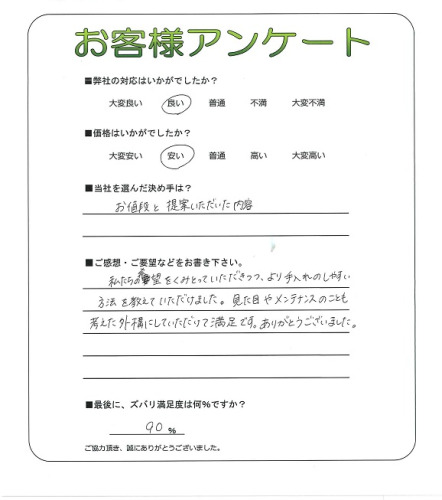 お客様アンケート
■弊社の対応はいかがでしたか？
大変良い 良い 普通 不満 大変不満
■価格はいかがでしたか？
大変安い 安い 普通 高い 大変高い
■当社を選んだ決め手は？
お値段と提案いただいた内容
■ご感想・ご要望などをお書き下さい。
私たちの要望をくみとっていただきつつ、より手入れのしやすい
方法を教えていただけました。見た目やメンテナンスのことも
考えた外構にしていただけて満足です。ありがとうございました。
■最後に、ズバリ満足度は何％ですか？
90 %
ご協力頂き、誠にありがとうございました。